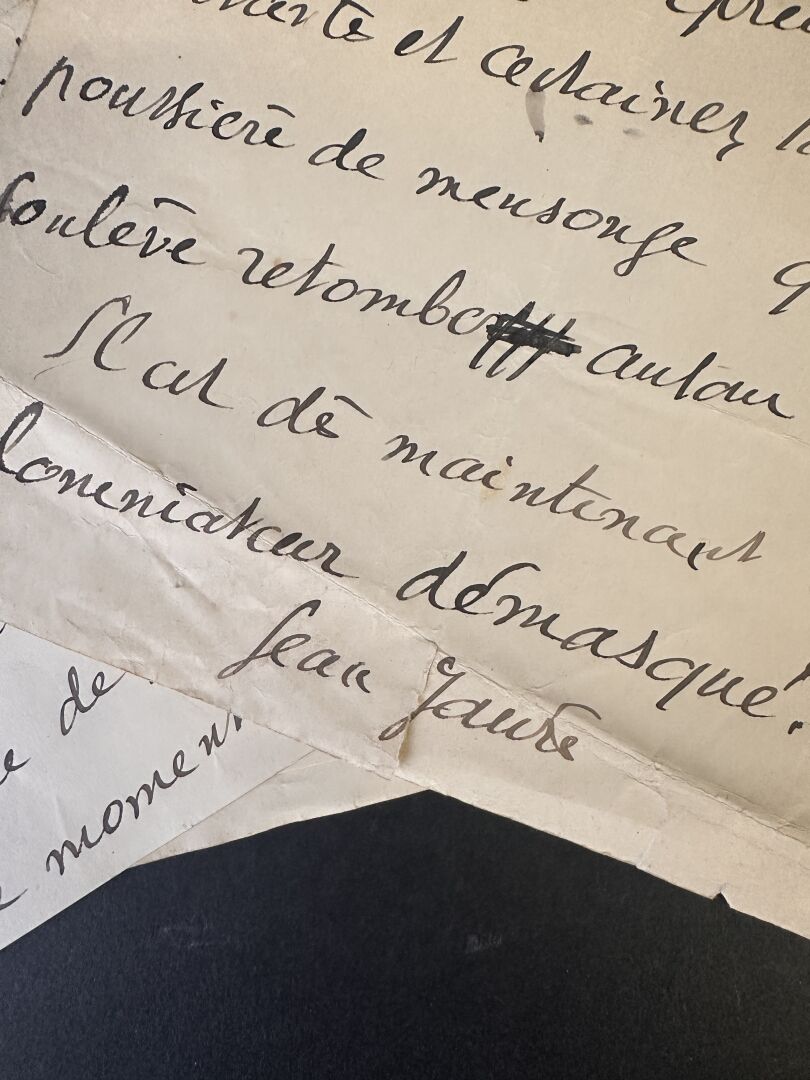 et certaines
poussière de mensonge q
soulève retombe autour
Il est dès maintenant
lomniateur démasqué.
Jean Jaurès
de
momen